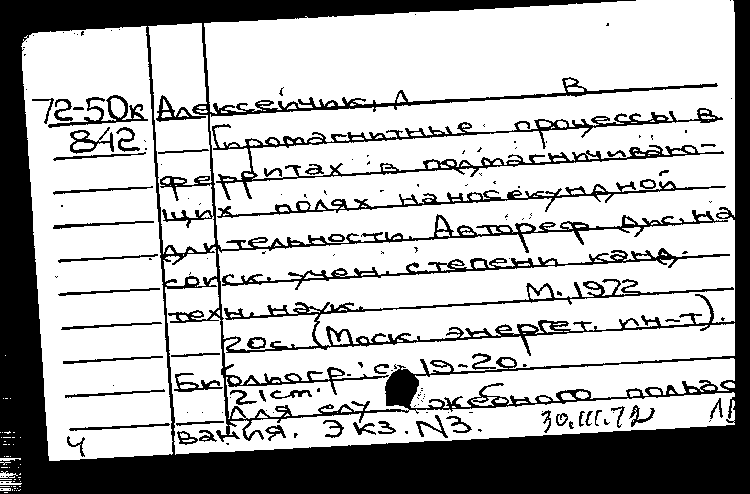 72-50к Алексейчик, Л В
842 Гиромагнитные процессы в
ферритах в подмагничиваю-
щих полях наносекундной
длительности. Автореф. дис. на
соиск. учен. степени канд.
техн. наук. М., 1972
20с. (Моск. энергет. ин-т).
Библиогр.: с. 19-20.
21cm.
Для служебного пользо
4 вания. Экз. N3. 30.III.72